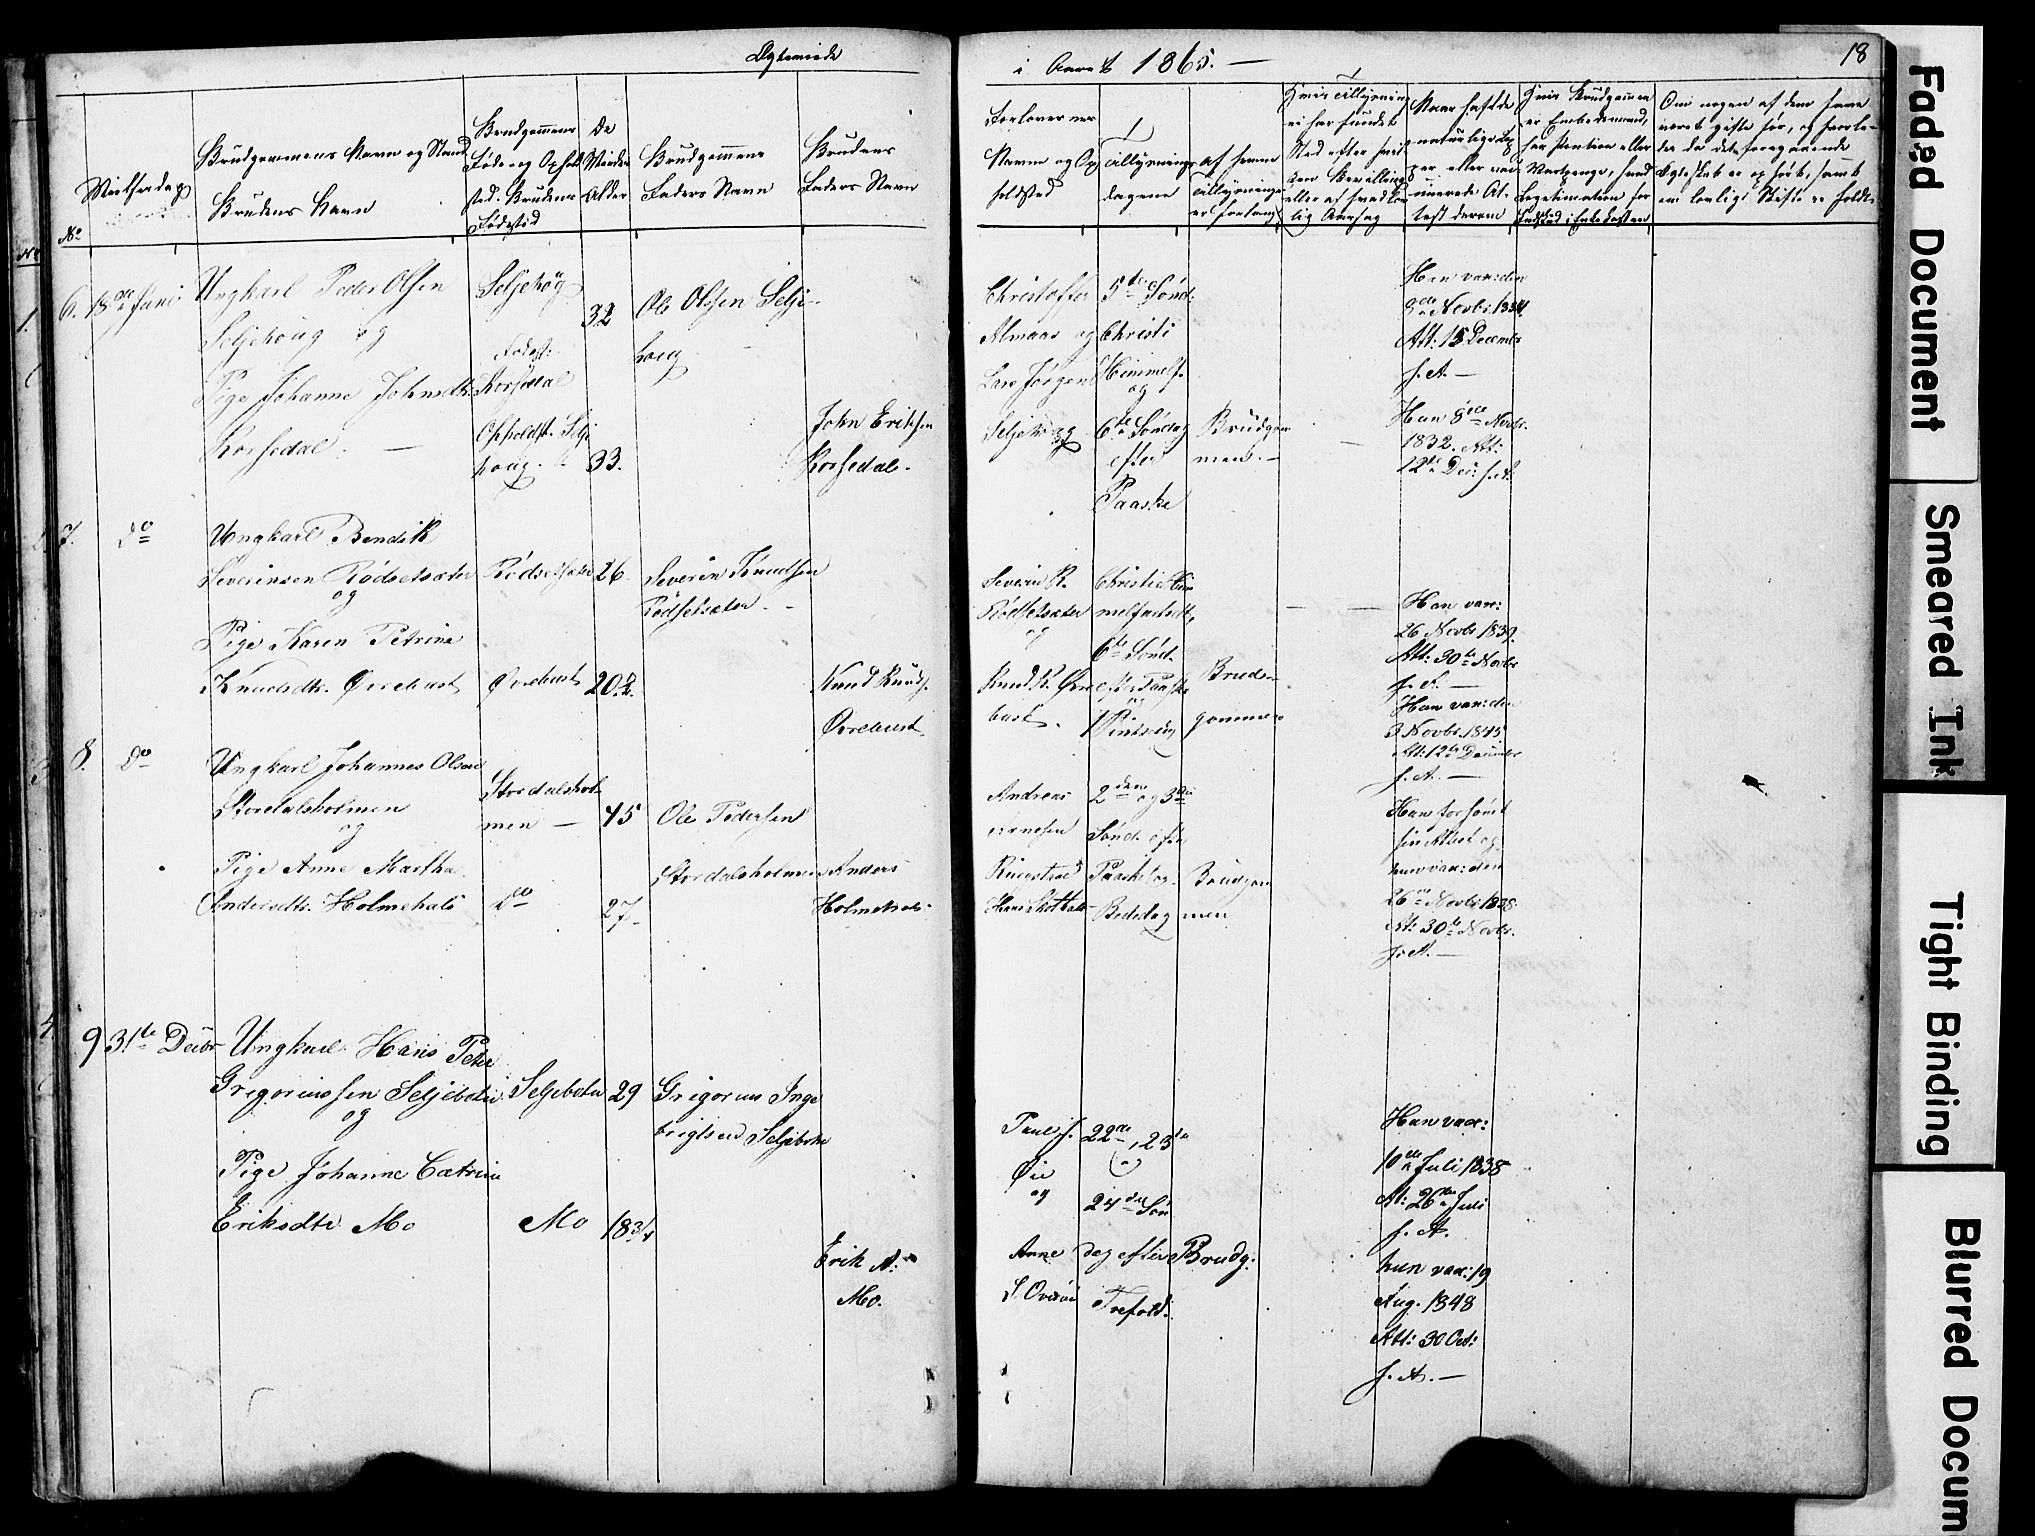 Ægteviede
i Aaret 1865. —
18
No
Vielsesdag
Brudgommens Navn og Stand
Brudens Navn
Brudgommens
Føde og Opholds
sted. Brudens
Fødested
De
Viedes
Alder
Brudgommens
Faders Navn
Brudens
Faders Navn
Forlovernes
Navne og Op
holdssted
Tillysnings
dagene
af hvem
tillysningen
er forlangt
Hvis Tillysning
ei har fundet
Sted efter hvil
ken Bevilling
eller af hvad lov
lig Aarsag
Naar havde
naturlige Kop
per eller vac
cinerede At-
test derom
Hvis Brudgommen
er Embedsmand,
har Pention eller
Vartpenge, hvad
Legitimation for
Indskud i Enkekassen
Om nogen af dem have
været gifte før, og hvorle-
des da det foregaaende
Ægteskab er ophört, samt
om lovligt Skifte er holdt
6.
18de Juni
Ungkarl Peder Olsen
Seljehoug og
Pige Johanne Johnsdtr.
Korsedal. —
Seljehøg
Fødest:
Korsedal
Opholdst. Selje
houg.
32
33.
Ole Olsen Selje-
houg
John Eriksen
Korsedal.
Christoffer
Almaas og
Lars Jörgens
Seljehoug
5te Sönd.
Christi
Himmelf.
og
6te Söndag
efter
Paaske
Brudgom
men. —
Han vac: den
9de Novbr. 1834.
Att: 15 Decembr
s. A. —
Hun 8de Novbr.
1832. Att:
12te Dec: s. A.
7.
Do
Ungkarl Bendik
Severinsen Rødsetsæter
og
Pige Karen Petrine
Knudsdtr. Ørrebust
Rødsetsæter
Ørrebust
26
20.
Severin Knudsen
Rödsetsæter.
Knud Knuds.
Ørrebust
Severin K.
Rödsetsæter
og
Knud K. Ørre
bust.
Christi Him
melfartsdt,
6te Sönd.
efter Paaske
og
1 Pintsedag
Brud-
gommen
Han vac:
26 Novbr. 1839.
Att: 30te Novbr
s. A. —
Hun vac: den
3 Novbr. 1845
Att: 12te Decembr
s. A. —
8.
Do
Ungkarl Johannes Olsen
Stordalsholmen
og
Pige Anne Martha
Andersdtr. Holmehals
Stordalshol-
men —
Do
45
27
Ole Pedersen
Stordalsholmen
Anders
Holmehals
Andreas
Arnesen
Ringstad
2den og 3die
Sönd. efter
Paaske og
Bededag
Brudgom
men
Han forsömt
sin Attest og
hun vac: den
26de Novbr. 1838.
At: 30te Novbr.
s. A. —
9
31te Decbr
Ungkarl Hans Peter
Gregoriussen Seljebotn
og
Pige Johanne Catrine
Eriksdtr Mo
Seljebotn
Mo
29
18 3/4
Grigorius Inge
brigtsen Seljebotn
Erik A:
Mo.
Paul J.
Øie
og
Anne
22de, 23de
og
24de Sön
dag efter
Trefold:
Brudg:
Han vac:
10de Juli 1835
At: 26de Juli
s. A.
hun vac: 19
Aug. 1848
Att: 30 Oct:
s. A. —
Faded Document
Smeared Ink
Tight Binding
Blurred Docum